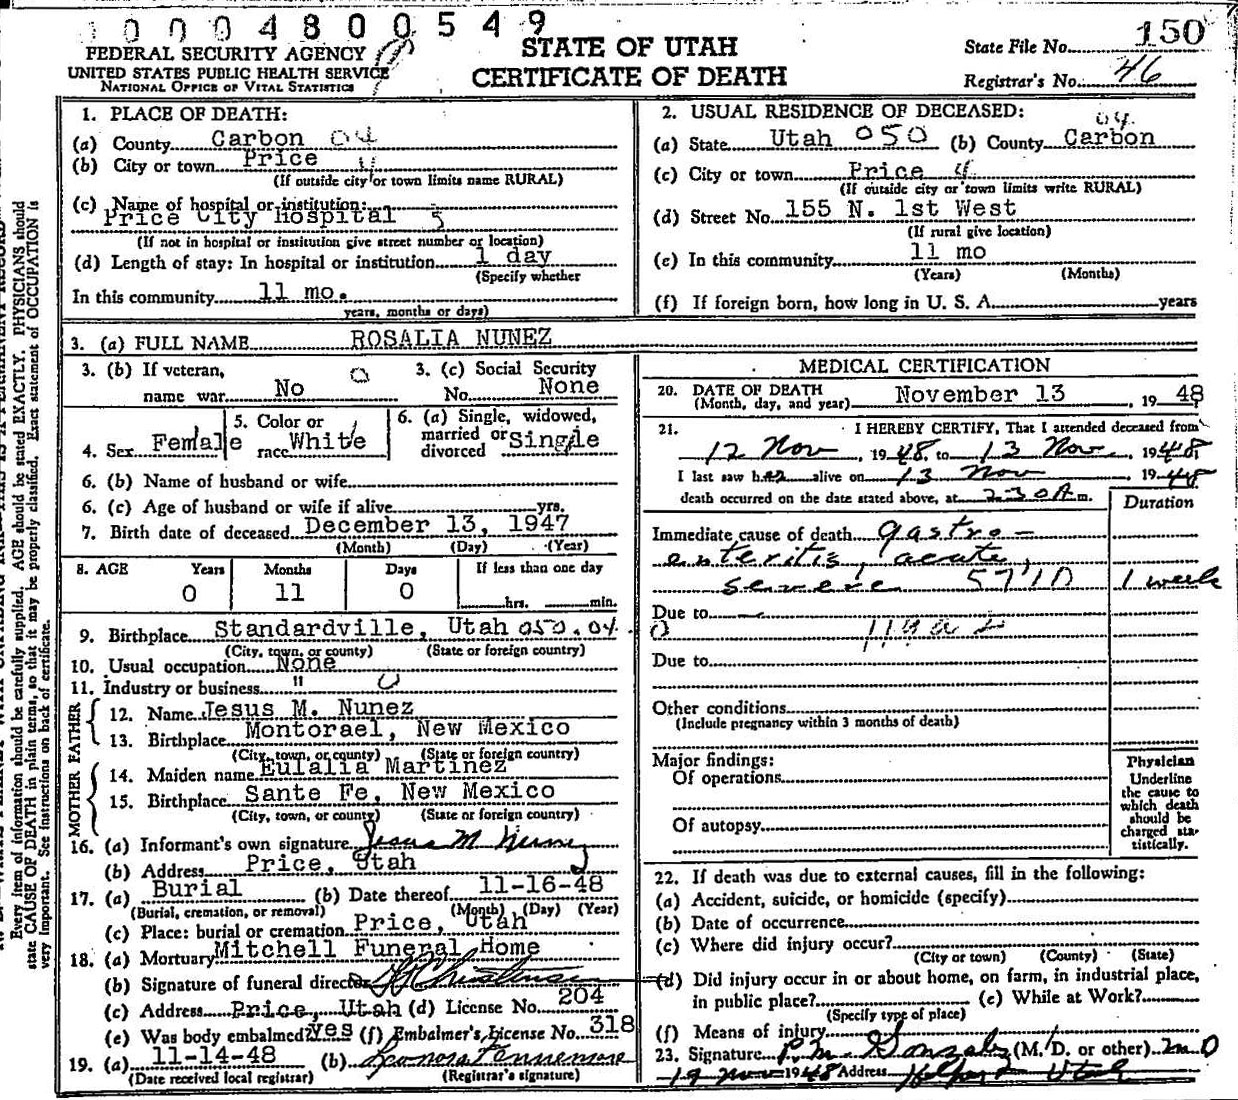 0004800549
FEDERAL SECURITY AGENCY
UNITED STATES PUBLIC HEALTH SERVICE
NATIONAL OFFICE OF VITAL STATISTICS
STATE OF UTAH
CERTIFICATE OF DEATH
State File No. 150
Registrar's No. 46
1. PLACE OF DEATH:
(a) County Carbon 04
(b) City or town Price 4
(If outside city or town limits name RURAL)
(c) Name of hospital or institution:
Price City Hospital 5
(If not in hospital or institution give street number or location)
(d) Length of stay: In hospital or institution 1 day
(Specify whether
In this community 11 mo.
years, months or days)
2. USUAL RESIDENCE OF DECEASED:
04
(a) State Utah 050 (b) County Carbon
(c) City or town Price 4
(If outside city or town limits write RURAL)
(d) Street No. 155 N. 1st West
(If rural give location)
(e) In this community 11 mo
(Years) (Months)
(f) If foreign born, how long in U. S. A. years
3. (a) FULL NAME ROSALIA NUNEZ
3. (b) If veteran,
name war No 0
3. (c) Social Security
No. None
4. Sex Female
5. Color or
race White
6. (a) Single, widowed,
married or
divorced Single
6. (b) Name of husband or wife
6. (c) Age of husband or wife if alive yrs.
7. Birth date of deceased December 13, 1947
(Month) (Day) (Year)
8. AGE Years Months Days If less than one day
0 11 0 hrs. min.
9. Birthplace Standardville, Utah 050.04
(City, town, or county) (State or foreign country)
10. Usual occupation None
11. Industry or business " 0
FATHER
12. Name Jesus M. Nunez
13. Birthplace Montorael, New Mexico
(City, town, or county) (State or foreign country)
MOTHER
14. Maiden name Eulalia Martinez
15. Birthplace Sante Fe, New Mexico
(City, town, or county) (State or foreign country)
16. (a) Informant's own signature Jesus M Nunez
(b) Address Price, Utah
17. (a) Burial (b) Date thereof 11-16-48
(Burial, cremation, or removal) (Month) (Day) (Year)
(c) Place: burial or cremation Price, Utah
18. (a) Mortuary Mitchell Funeral Home
(b) Signature of funeral director
(c) Address Price, Utah (d) License No. 204
(e) Was body embalmed? yes (f) Embalmer's License No. 318
19. (a) 11-14-48 (b)
(Date received local registrar) (Registrar's signature)
MEDICAL CERTIFICATION
20. DATE OF DEATH
(Month, day, and year) November 13, 1948
21. I HEREBY CERTIFY, That I attended deceased from
12 Nov, 1948, to 13 Nov., 1948,
I last saw her alive on 13 Nov, 1948
death occurred on the date stated above, at 2:30 A. m.
Duration
Immediate cause of death gastro-
enteritis, acute,
severe 5710 1 week
Due to
0
Due to
Other conditions
(Include pregnancy within 3 months of death)
Major findings:
Of operations
Of autopsy
Physician
Underline
the cause to
which death
should be
charged sta-
tistically.
22. If death was due to external causes, fill in the following:
(a) Accident, suicide, or homicide (specify)
(b) Date of occurrence
(c) Where did injury occur?
(City or town) (County) (State)
(d) Did injury occur in or about home, on farm, in industrial place,
in public place? (e) While at Work?
(Specify type of place)
(f) Means of injury
23. Signature P.M. Gonzalez (M. D. or other) M D
19 Nov 1948 Address Helper Utah
Every item of information should be carefully supplied. AGE should be stated EXACTLY. PHYSICIANS should
state CAUSE OF DEATH in plain terms, so that it may be properly classified. Exact statement of OCCUPATION is
very important. See instructions on back of certificate.